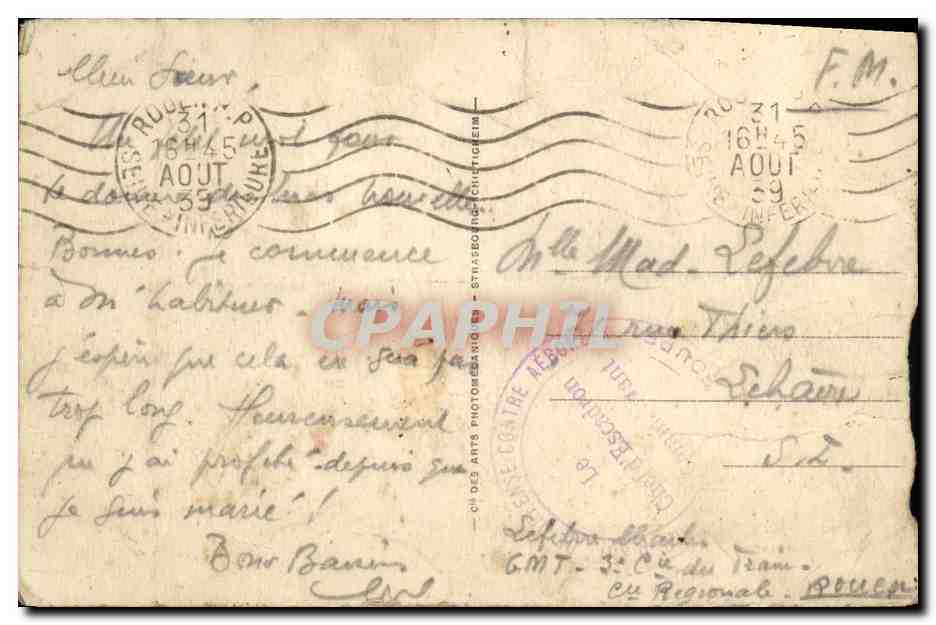 F. M.
ROUEN
31
16H45
AOUT
39
SEINE INFERIEURE
31
16H45
AOUT
39
SEINE INFERI
Un mot pour
te donner de mes nouvelles.
Bonnes. je commence
à m'habituer. mais
j'espère que cela ne sera pas
trop long. Heureusement
que j'ai profité depuis que
je suis marié!
Bons Baisers
Cie DES ARTS PHOTOMECANIQUES - STRASBOURG-SCHILTIGHEIM
Mlle Mad. Lefebvre
rue Thiers
Le Havre
S. I.
DEFENSE CONTRE AERONEFS
Le
Chef d'Escadron
Lefebvre
GMT - 3e Cie du Train.
Cie Régionale. Rouen
CPAPHIL